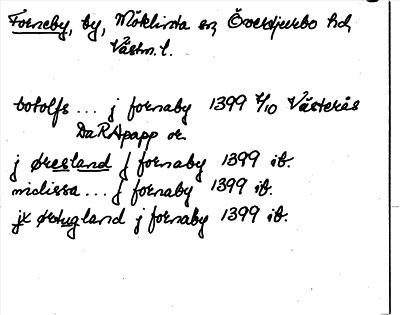 Forneby, by, Möklinta sn, Överdjurbo hd,
Västm. l.
botolfs ... j fornaby 1399 4/10 Västerås
DaRApapp or.
j øresland j fornaby 1399 ib.
niclissa ... j fornaby 1399 ib.
jx ørtugland j fornaby 1399 ib.